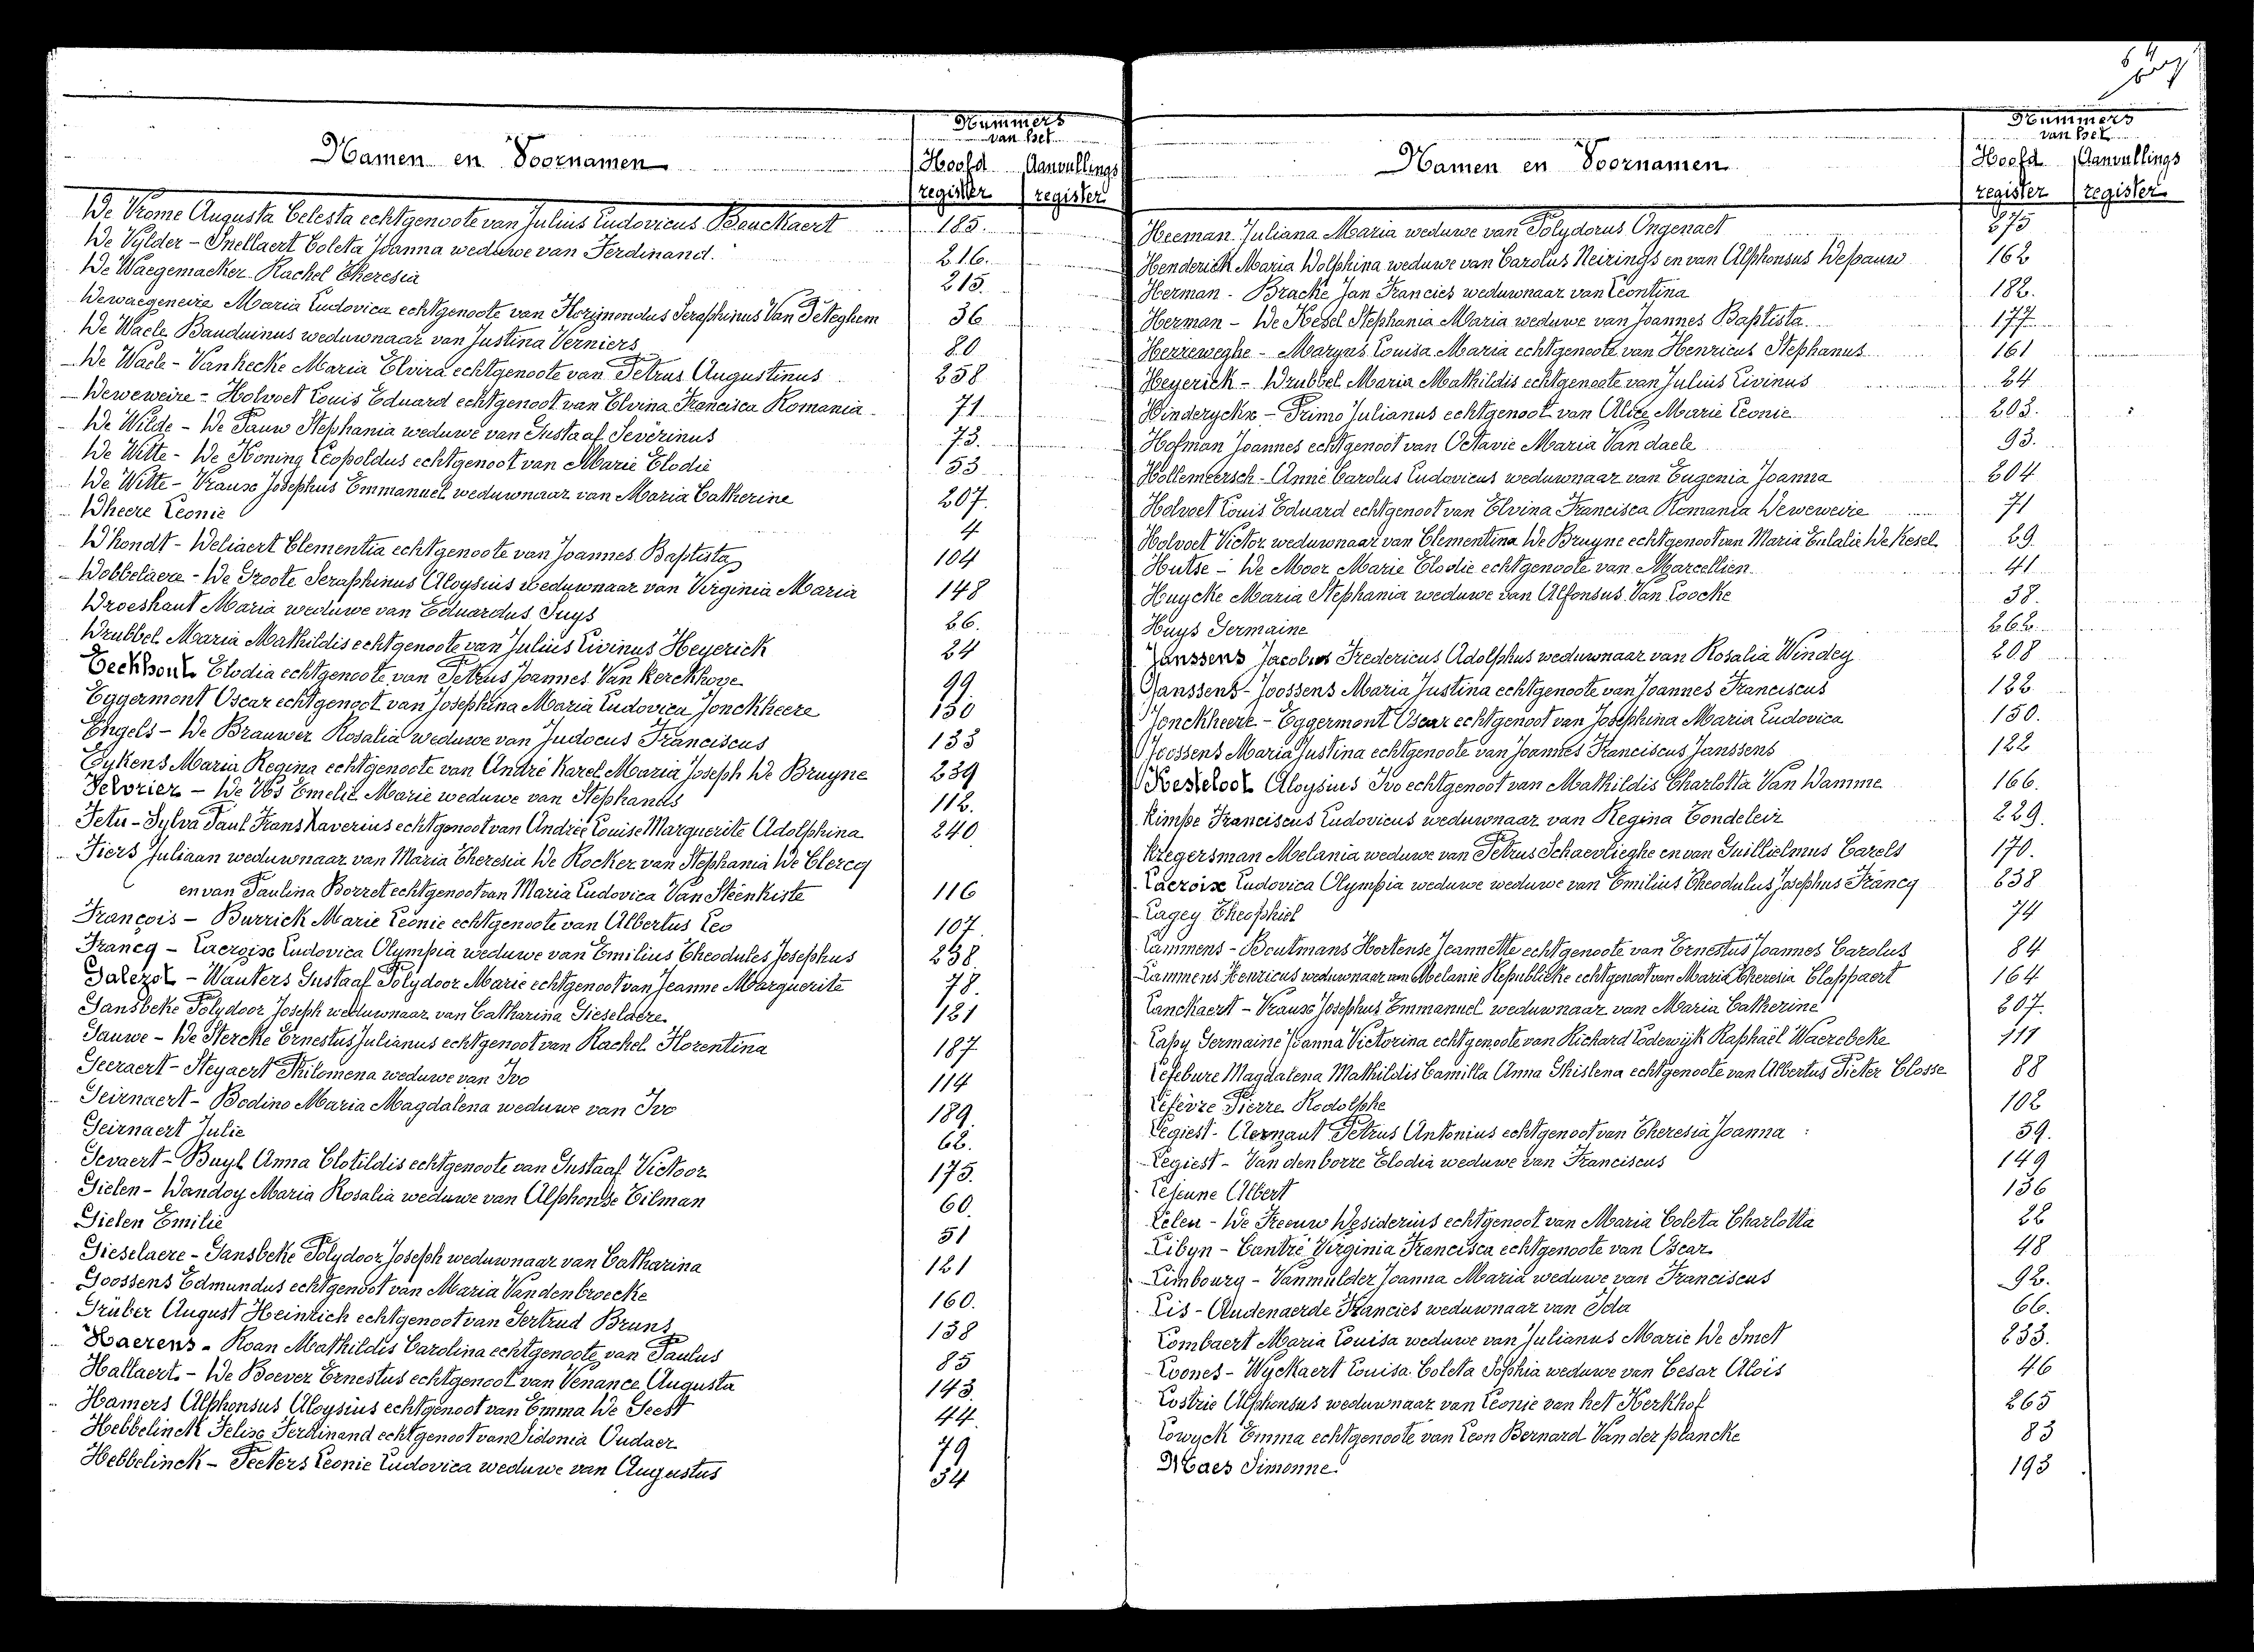 Nummers
van het
Namen en Voornamen
Hoofd Aanvullings
register register
De Vrome Augusta Celesta echtgenoote van Julius Ludovicus Bouckaert 185.
De Vylder - Snellaert Coleta Joanna weduwe van Ferdinand. 216.
De Waegemaeker Rachel Theresia 215.
Dewaegeneire Maria Ludovica echtgenoote van Seraphinus Van Peteghem 36
De Waele Bauduinus weduwnaar van Justina Verniers 80
De Waele - Vanhecke Maria Elvira echtgenoote van Petrus Augustinus 258
Deweweire - Holvoet Louis Eduard echtgenoot van Elvina Francisca Romania 71
De Wilde - De Pauw Stephania weduwe van Gustaaf Severinus 73.
De Witte - De Koning Leopoldus echtgenoot van Marie Elodie 53
De Witte - Krause Josephus Emmanuel weduwnaar van Maria Catherine 207.
Dheere Leonie 4
D'hondt - Deliaert Clementia echtgenoote van Joannes Baptista 104
Dobbelaere - De Groote Seraphinus Aloysius weduwnaar van Virginia Maria 148
Droeshaut Maria weduwe van Eduardus Suys 26.
Drubbel Maria Mathildis echtgenoote van Julius Livinus Heyerick 24
Eeckhout Elodia echtgenoote van Petrus Joannes Van Kerckhove 99
Eggermont Oscar echtgenoot van Josephina Maria Ludovica Jonckheere 150
Engels - De Brauwer Rosalia weduwe van Judocus Franciscus 133
Eykens Maria Regina echtgenoote van André Karel Maria Joseph De Bruyne 239
Felorier - De Vos Emelie Marie weduwe van Stephanus 112.
Fetu - Sylva Paul Frans Xaverius echtgenoot van Andrée Louise Marguerite Adolphina 240
Fiers Juliaan weduwnaar van Maria Theresia De Rocker van Stephania De Clercq
en van Paulina Borret echtgenoot van Maria Ludovica Van Steenkiste 116
François - Burrick Marie Leonie echtgenoote van Albertus Leo 107
Francq - Lacroix Ludovica Olympia weduwe van Emilius Theodules Josephus 238.
Galezot - Wauters Gustaaf Polydoor Marie echtgenoot van Jeanne Marguerite 78.
Gansbeke Polydoor Joseph weduwnaar van Catharina Gieselaere 121
Gauwe - De Stercke Ernestus Julianus echtgenoot van Rachel Florentina 187
Geeraert - Steyaert Philomena weduwe van Ivo 114
Geirnaert - Bodino Maria Magdalena weduwe van Ivo 189.
Geirnaert Julie 62.
Gevaert - Buyl Anna Clotildis echtgenoote van Gustaaf Victoor 175.
Gielen - Dandoy Maria Rosalia weduwe van Alphonse Tilman 60.
Gielen Emilie 51
Gieselaere - Gansbeke Polydoor Joseph weduwnaar van Catharina 121
Goossens Edmundus echtgenoot van Maria Vandenbroecke 160.
Grüber August Heinrich echtgenoot van Gertrud Bruns 138
Haerens - Roan Mathildis Carolina echtgenoote van Paulus 85
Hallaert - De Boever Ernestus echtgenoot van Venance Augusta 143.
Hamers Alphonsus Aloysius echtgenoot van Emma De Geest 44.
Hebbelinck Felix Ferdinand echtgenoot van Sidonia Oudaer 79
Hebbelinck - Peeters Leonie Ludovica weduwe van Augustus 54
64
Nummers
van het
Namen en Voornamen
Hoofd Aanvullings
register register
Heeman Juliana Maria weduwe van Polydorus Ongenaet 275
Henderick Maria Dolphina weduwe van Carolus Neirings en van Alphonsus Depauw 162
Herman - Bracke Jan Francies weduwnaar van Leontina 182.
Herman - De Kesel Stephania Maria weduwe van Joannes Baptista 177
Herreweghe - Maryns Louisa Maria echtgenoote van Henricus Stephanus 161
Heyerick - Drubbel Maria Mathildis echtgenoote van Julius Livinus 24
Hinderyckx - Primo Julianus echtgenoot van Alice Marie Leonie 203.
Hofman Joannes echtgenoot van Octavie Maria Van daele 93.
Hollemeersch - Anné Carolus Ludovicus weduwnaar van Eugenia Joanna 204
Holvoet Louis Eduard echtgenoot van Elvina Francisca Romania Deweweire 71
Holvoet Victor weduwnaar van Clementina De Bruyne echtgenoot van Maria Eulalie De Kesel 29
Hutse - De Moor Marie Elodie echtgenoote van Marcellien 41
Huycke Maria Stephania weduwe van Alfonsus Van Loocke 38.
Huys Germaine 262.
Janssens Jacobus Fredericus Adolphus weduwnaar van Rosalia Windey 208
Janssens - Joossens Maria Justina echtgenoote van Joannes Franciscus 122
Jonckheere - Eggermont Oscar echtgenoot van Josephina Maria Ludovica 150.
Joossens Maria Justina echtgenoote van Joannes Franciscus Janssens 122
Kesteloot Aloysius Ivo echtgenoot van Mathildis Charlotta Van Damme 166.
Kimpe Franciscus Ludovicus weduwnaar van Regina Tondeleir 229.
Kregersman Melania weduwe van Petrus Schaevlieghe en van Guillielmus Carels 170.
Lacroix Ludovica Olympia weduwe weduwe van Emilius Theodulus Josephus Francq 238
Lagey Theophiel 74
Lammens - Boutmans Hortense Jeannette echtgenoote van Ernestus Joannes Carolus 84
Lammens Henricus weduwnaar van Melanie Republicke echtgenoot van Maria Theresia Clappaert 164
Lanckaert - Krause Josephus Emmanuel weduwnaar van Maria Catherine 207.
Lapy Germaine Joanna Victorina echtgenoote van Richard Lodewijk Raphaël Waerebeke 111
Lefebure Magdalena Mathildis Camilla Anna Ghislena echtgenoote van Albertus Pieter Closse 88
Lefèvre Pierre Rodolphe 102
Legiest - Aernaut Petrus Antonius echtgenoot van Theresia Joanna 59.
Legiest - Van den borre Elodia weduwe van Franciscus 149
Lejeune Albert 136
Lelen - De Freeuw Desiderius echtgenoot van Maria Coleta Charlotta 22
Libyn - Cantré Virginia Francisca echtgenoote van Oscar 48
Limbourg - Vanmulder Joanna Maria weduwe van Franciscus 92.
Lis - Audenaerde Francies weduwnaar van Ida 66.
Lombaert Maria Louisa weduwe van Julianus Marie De Smet 233.
Loones - Wyckaert Louisa Coleta Sophia weduwe van Cesar Alois 46
Lostrie Alphonsus weduwnaar van Leonie van het Kerkhof 265
Lowyck Emma echtgenoote van Leon Bernard Van der plancke 83
Maes Simonne 193